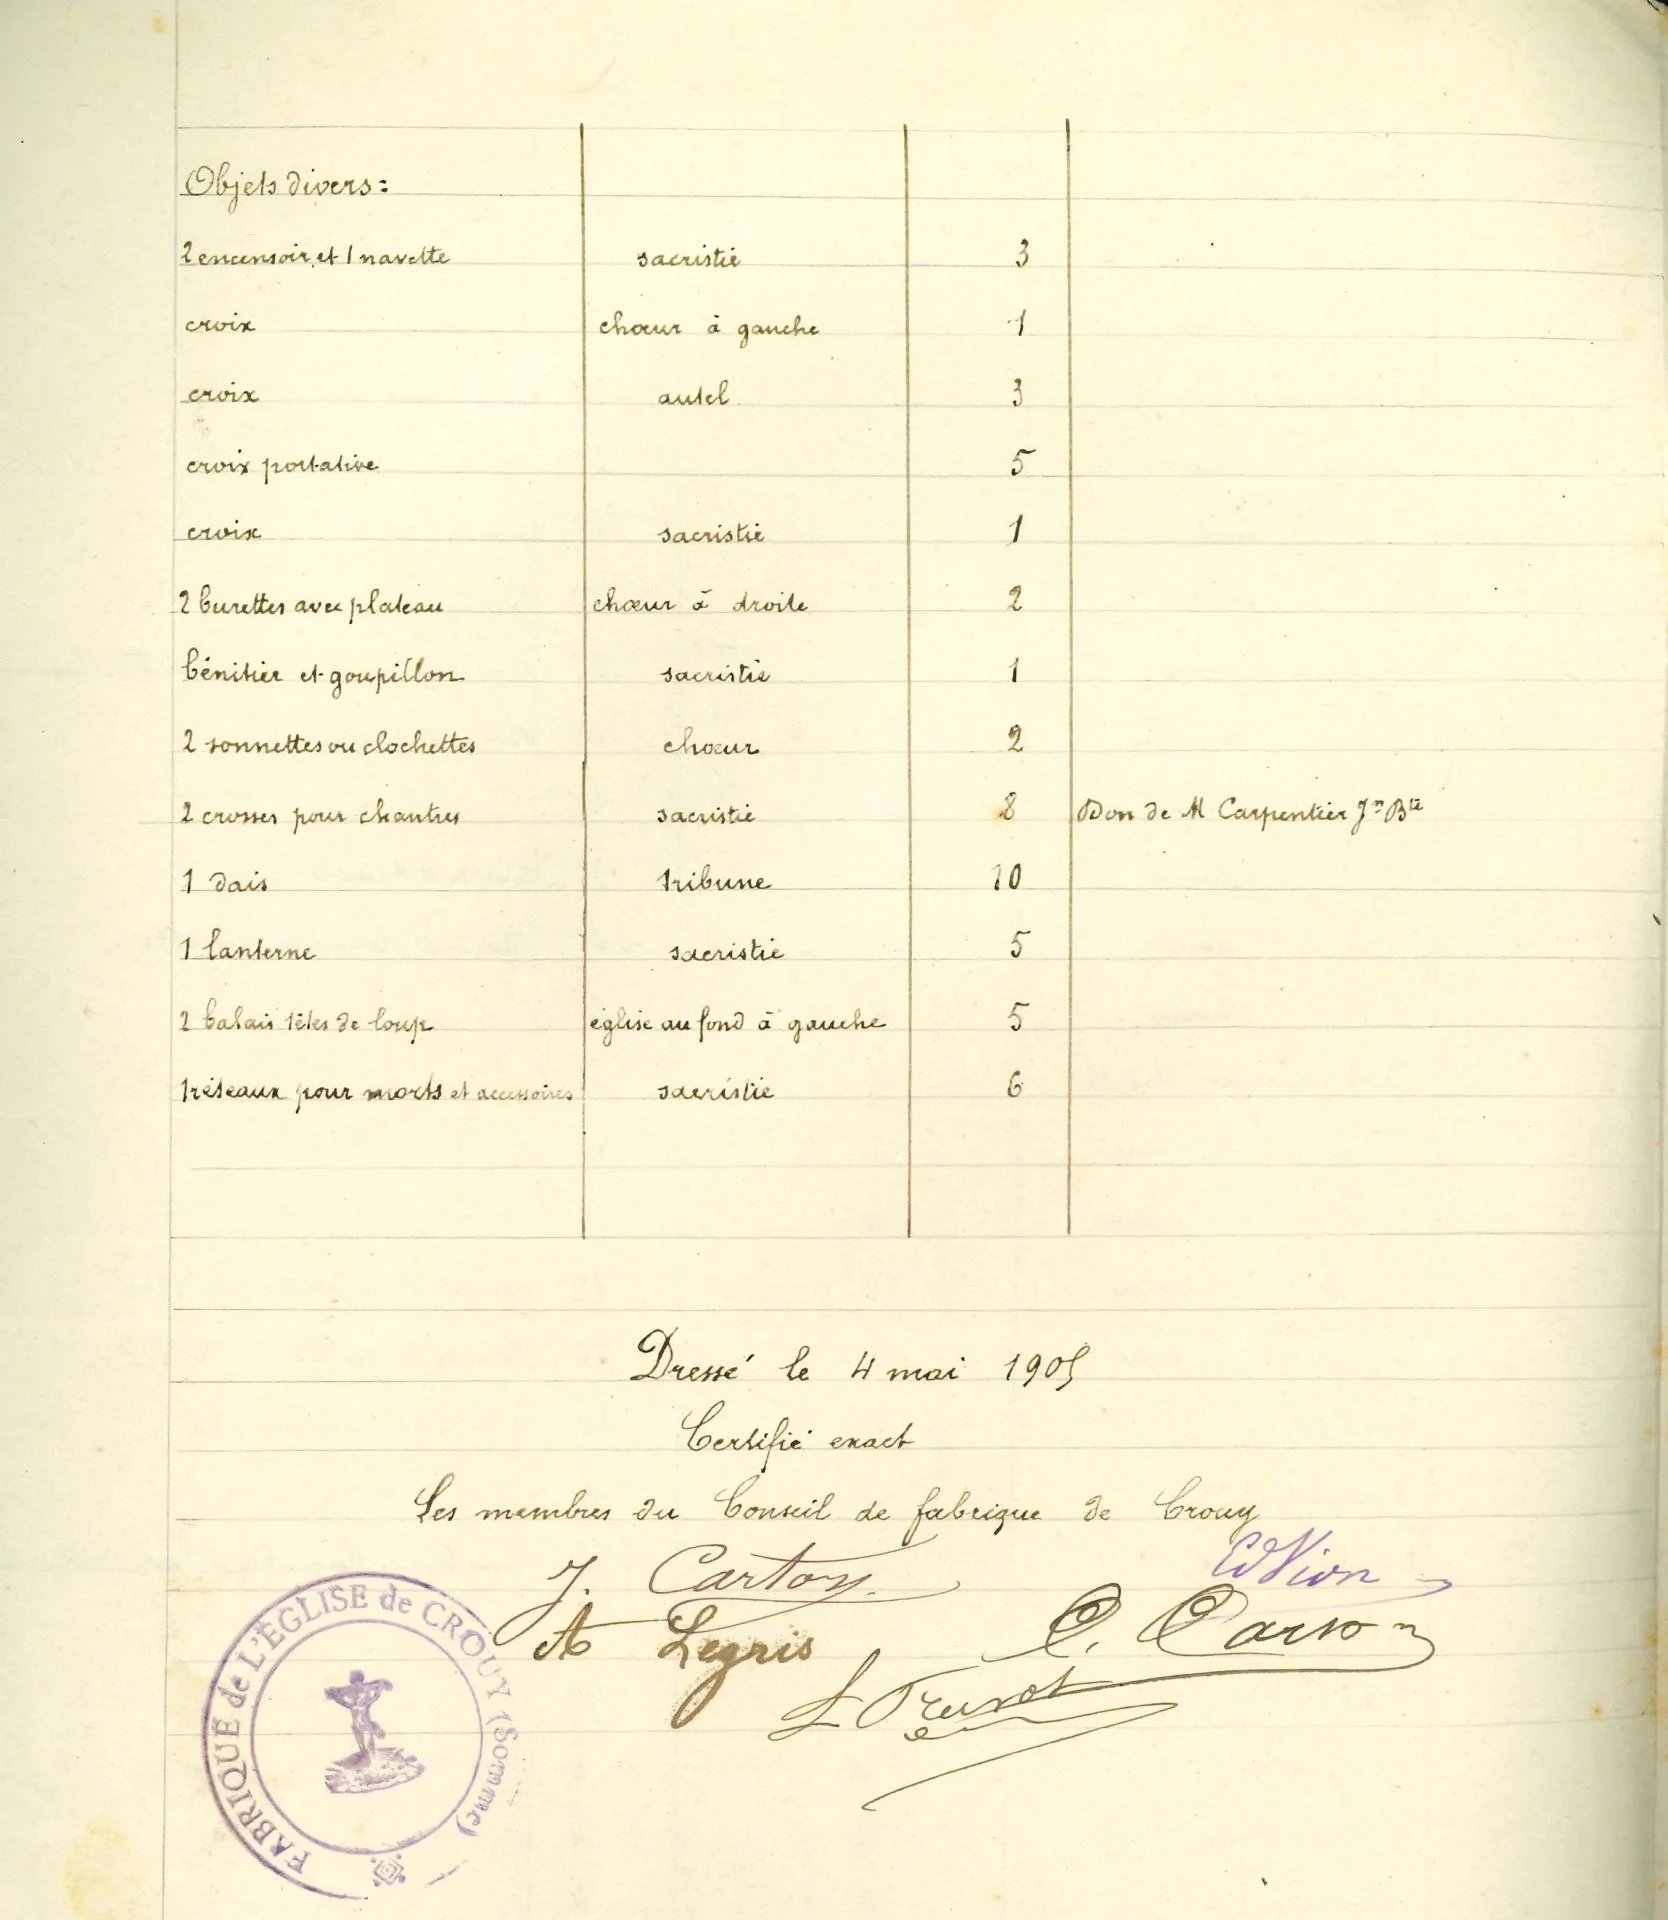 Objets divers :
2 encensoir et 1 navette sacristie 3
croix chœur à gauche 1
croix autel 3
croix portative 5
croix sacristie 1
2 burettes avec plateau chœur à droite 2
bénitier et goupillon sacristie 1
2 sonnettes ou clochettes chœur 2
2 crosses pour chantres sacristie 8 Don de M Carpentier Jn Bte
1 dais tribune 10
1 lanterne sacristie 5
2 balais têtes de loup église au fond à gauche 5
tréteaux pour morts et accessoires sacristie 6
Dressé le 4 mai 1905
Certifié exact
Les membres du Conseil de fabrique de Crouy
J. Carton
A Legris
FABRIQUE de L'ÉGLISE de CROUY (Somme)